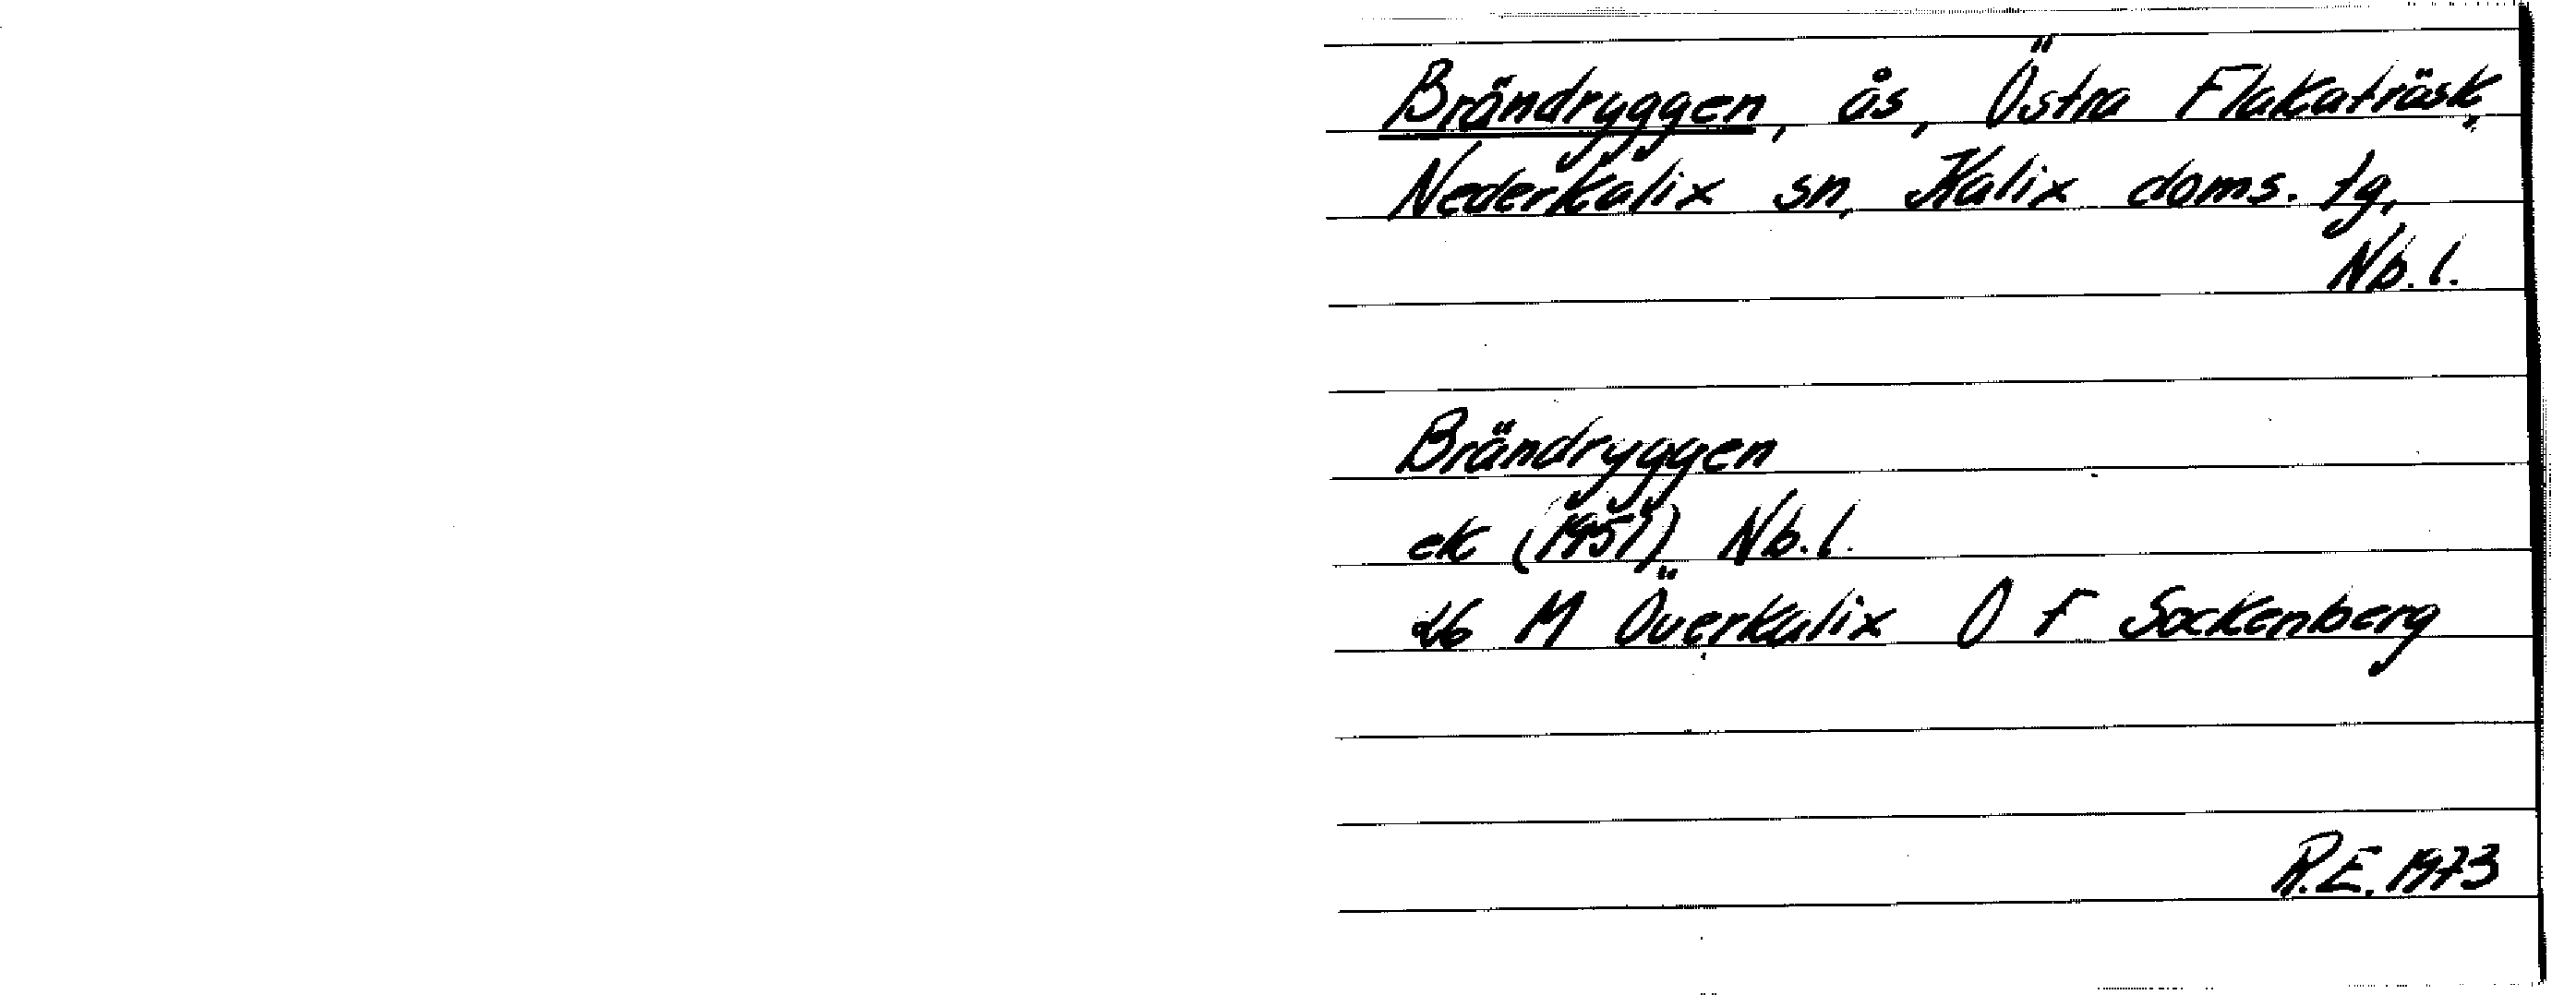 Brändryggen, ås, Östra Flakaträsk,
Nederkalix sn, Kalix doms. tg,
Nb.l.
Brändryggen
ek (1951) Nb.l.
26 M Överkalix O f Sockenberg
R.E. 1973